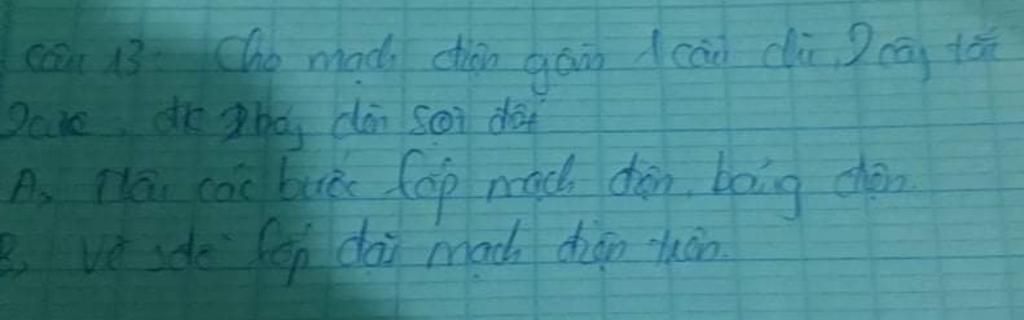 Câu 13: Cho mạch điện gồm 1 cầu chì, 2 công tắc
đk 2 bóng đèn sợi đốt
A, Nêu các bước lắp mạch điện bảng điện.
B, Vẽ sơ đồ lắp đặt mạch điện trên.